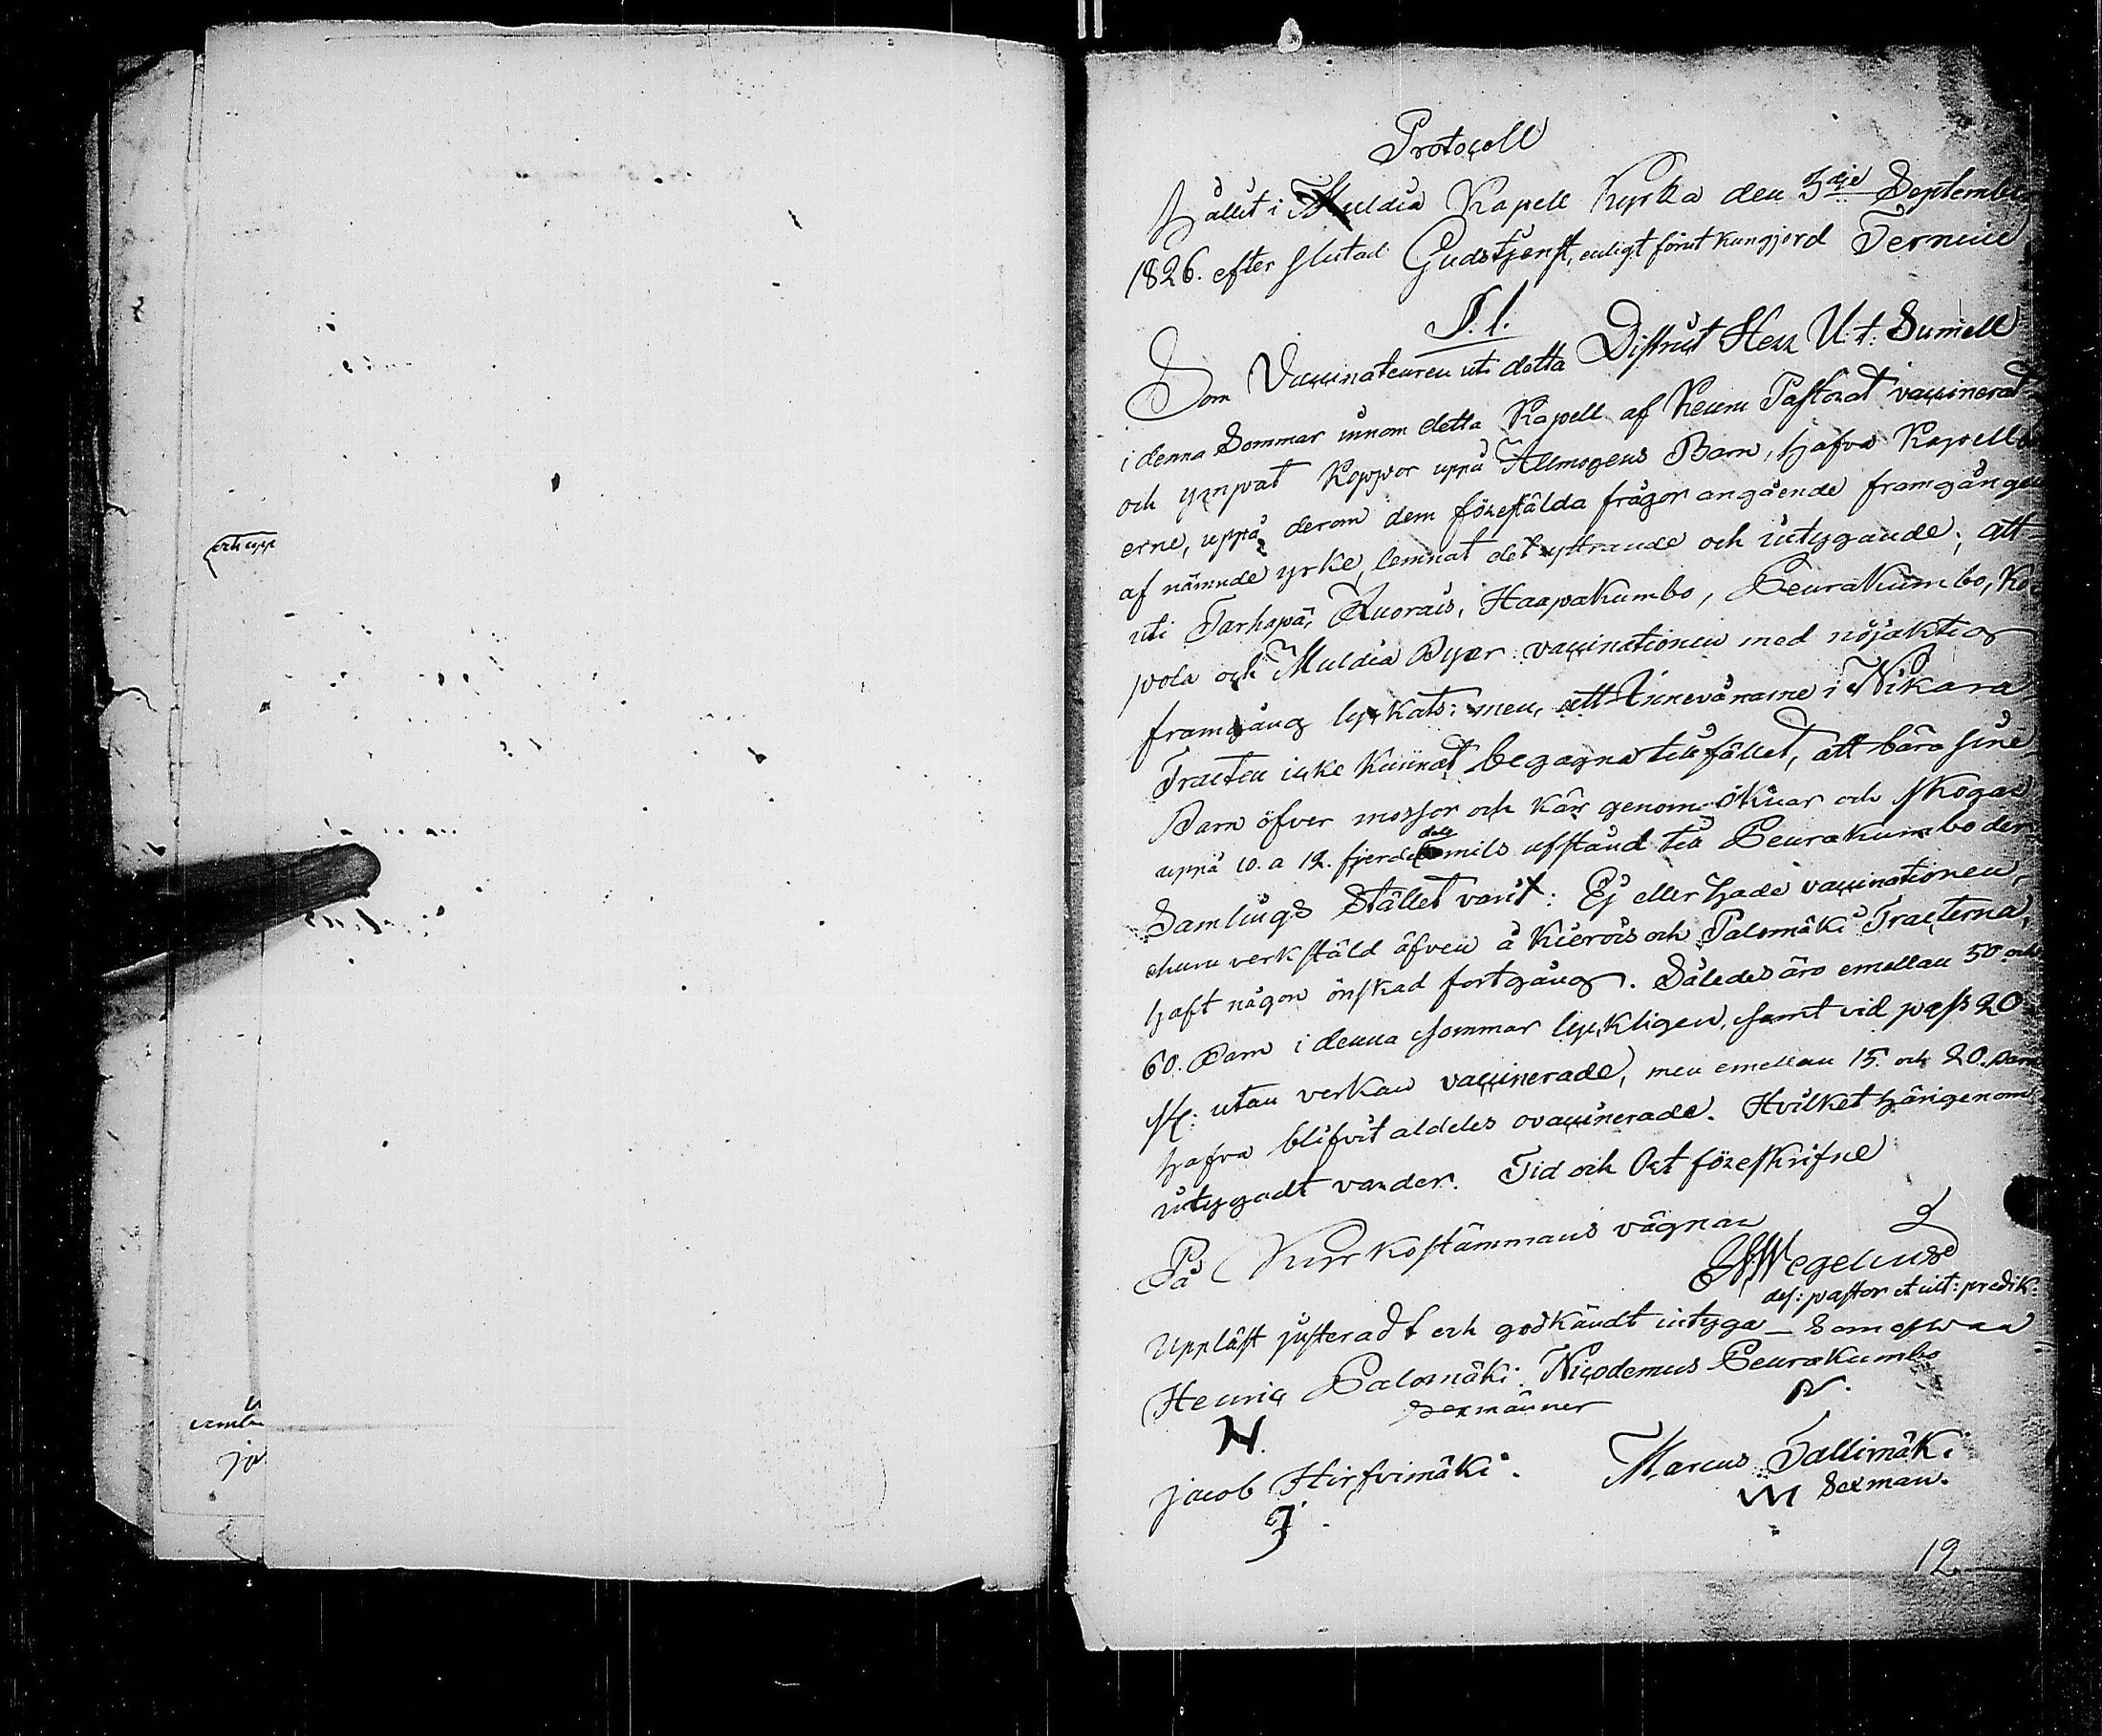 Protocoll
hållit i Muldia Kapell Kyrka den 3dje September
1826. efter slutad Gudstjenst, enligt förut kungjord Termin
S. 1.
Som Vaccinateuren uti detta District Herr U: t: Sumell
i denna Sommar innom detta Kapell af Keuru Pastorat vaccinerat
och ympat Koppor uppå Allmogens Barn, hafva Kapellbo
erne, uppå derom dem föreställda frågor angående framgången
af nämnde yrke, lemnat det yttrande och intygande; att
uti Tarhapä, Ruorais, Haapakumbo, Peurakumbo, Ko-
pola och Muldia Byar vaccinationen med nöjaktig
framgång lyckats: men, att Innevånarne i Nikara
Tracten icke kunnat begagna tillfället, att bära sine
Barn öfver mossor och kärr genom öknar och skogar
uppå 10. a 12. fjerdedels mils afstånd till Peurakumbo der
Samlings Stället varit: Ej eller hade vaccinationen,
ehuru verkställd äfven å Kierois och Palomäki Tracterna,
haft någon önskad fortgång. Således äro emellan 50. och
60. Barn i denna sommar lyckligen, samt vid pass 20.
st: utan verkan vaccinerade, men emellan 15. och 20. Barn
hafva blifvit aldeles ovaccinerade. Hvilket härigenom
intygadt varder. Tid och Ort föreskrifne
På Kyrkostämmans vägnar
Wegelius
def: pastor et ult: predik:
Uppläst justeradt och godkändt intyga
Henric Palomäki. Nicodemus Peurakumbo
sexmänner
N.
N.
Jacob Hirfvimäki. Marcus Tallimäki
J.
M Sexman.
12.
och upp